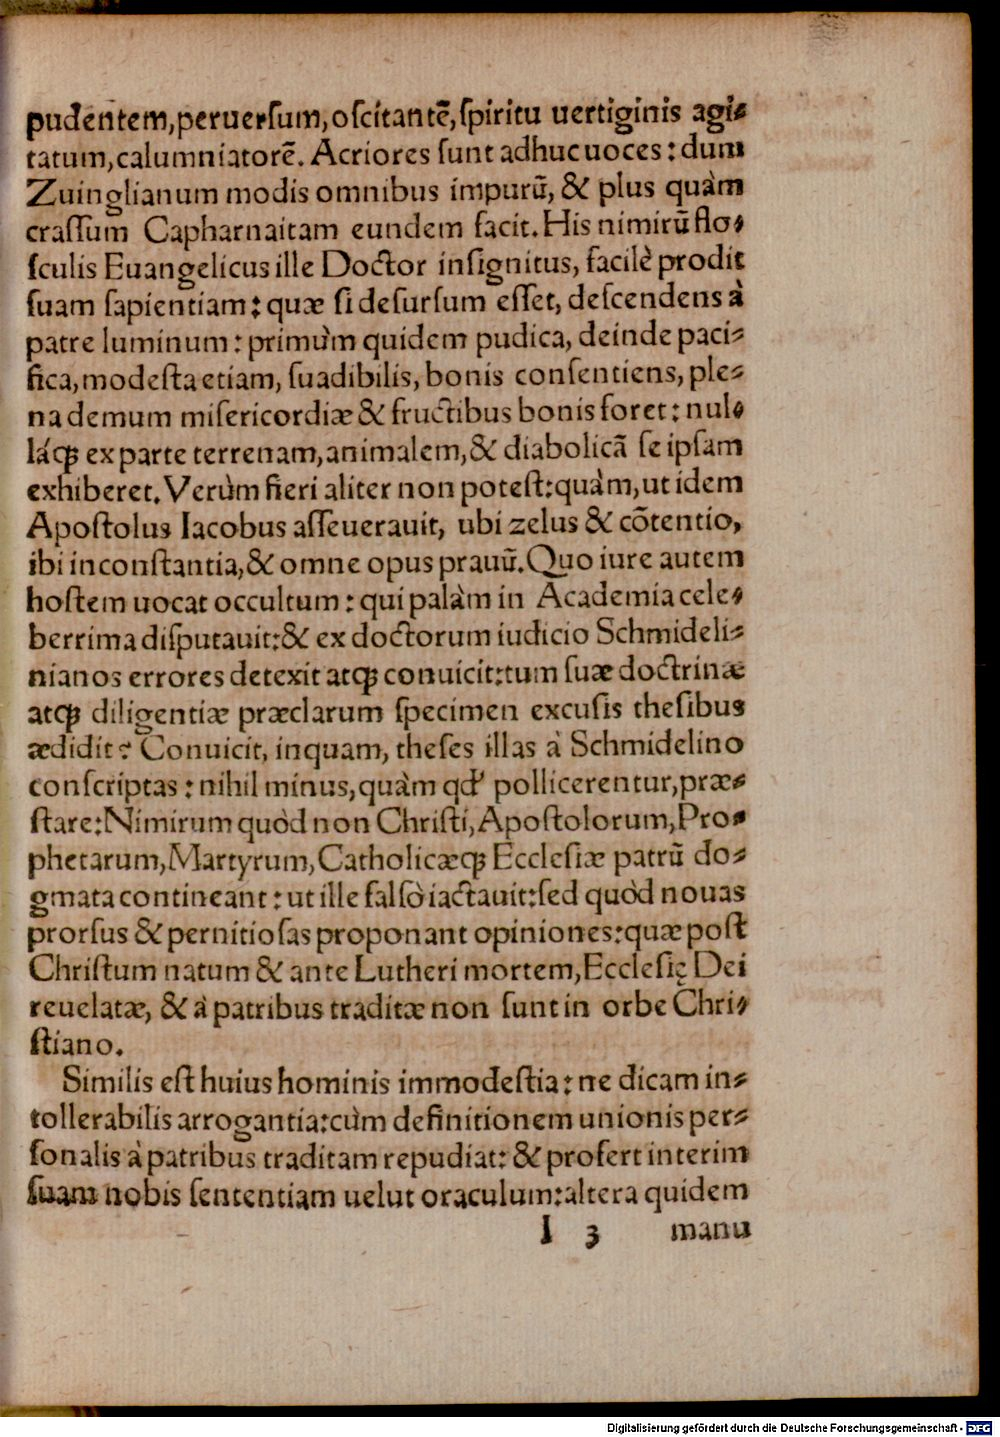 pudentem,peruerſum,oſcitantē,ſpiritu uertiginis agi⸗
tatum,calumniatorē. Acriores ſunt adhuc uoces: dum
Zuinglianum modis omnibus impurū, & plus quàm
craſſum Capharnaitam eundem facit. His nimirū flo⸗
ſculis Euangelicus ille Doctor inſignitus, facilè prodit
ſuam ſapientiam: quæ ſi deſurſum eſſet, deſcendens à
patre luminum: primùm quidem pudica, deinde paci⸗
fica,modeſta etiam, ſuadibilis, bonis conſentiens, ple⸗
na demum miſericordiæ & fructibus bonis foret: nul⸗
láꝗ ex parte terrenam,animalem,& diabolicā ſe ipſam
exhiberet. Verùm fieri aliter non poteſt:quàm,ut idem
Apoſtolus Iacobus aſſeuerauit, ubi zelus & cōtentio,
ibi inconſtantia,& omne opus prauū. Quo iure autem
hoſtem uocat occultum: qui palàm in Academia cele⸗
berrima diſputauit:& ex doctorum iudicio Schmideli⸗
nianos errores detexit atꝗ conuicit:tum ſuæ doctrinæ
atꝗ diligentiæ præclarum ſpecimen excuſis theſibus
ædidit? Conuicit, inquam, theſes illas à Schmidelino
conſcriptas: nihil minus,quàm qd' pollicerentur,præ⸗
ſtare:Nimirum quòd non Chriſti,Apoſtolorum,Pro⸗
phetarum,Martyrum,Catholicæꝗ Eccleſiæ patrū do⸗
gmata contineant: ut ille falſò iactauit:ſed quòd nouas
prorſus & pernitioſas proponant opiniones:quæ poſt
Chriſtum natum & ante Lutheri mortem,Eccleſię Dei
reuelatæ, & à patribus traditæ non ſunt in orbe Chri⸗
ſtiano.
Similis eſt huius hominis immodeſtia: ne dicam in⸗
tollerabilis arrogantia:cùm definitionem unionis per⸗
ſonalis à patribus traditam repudiat: & profert interim
ſuam nobis ſententiam uelut oraculum:altera quidem
I 3 manu
Digitalisierung gefördert durch die Deutsche Forschungsgemeinschaft - DFG